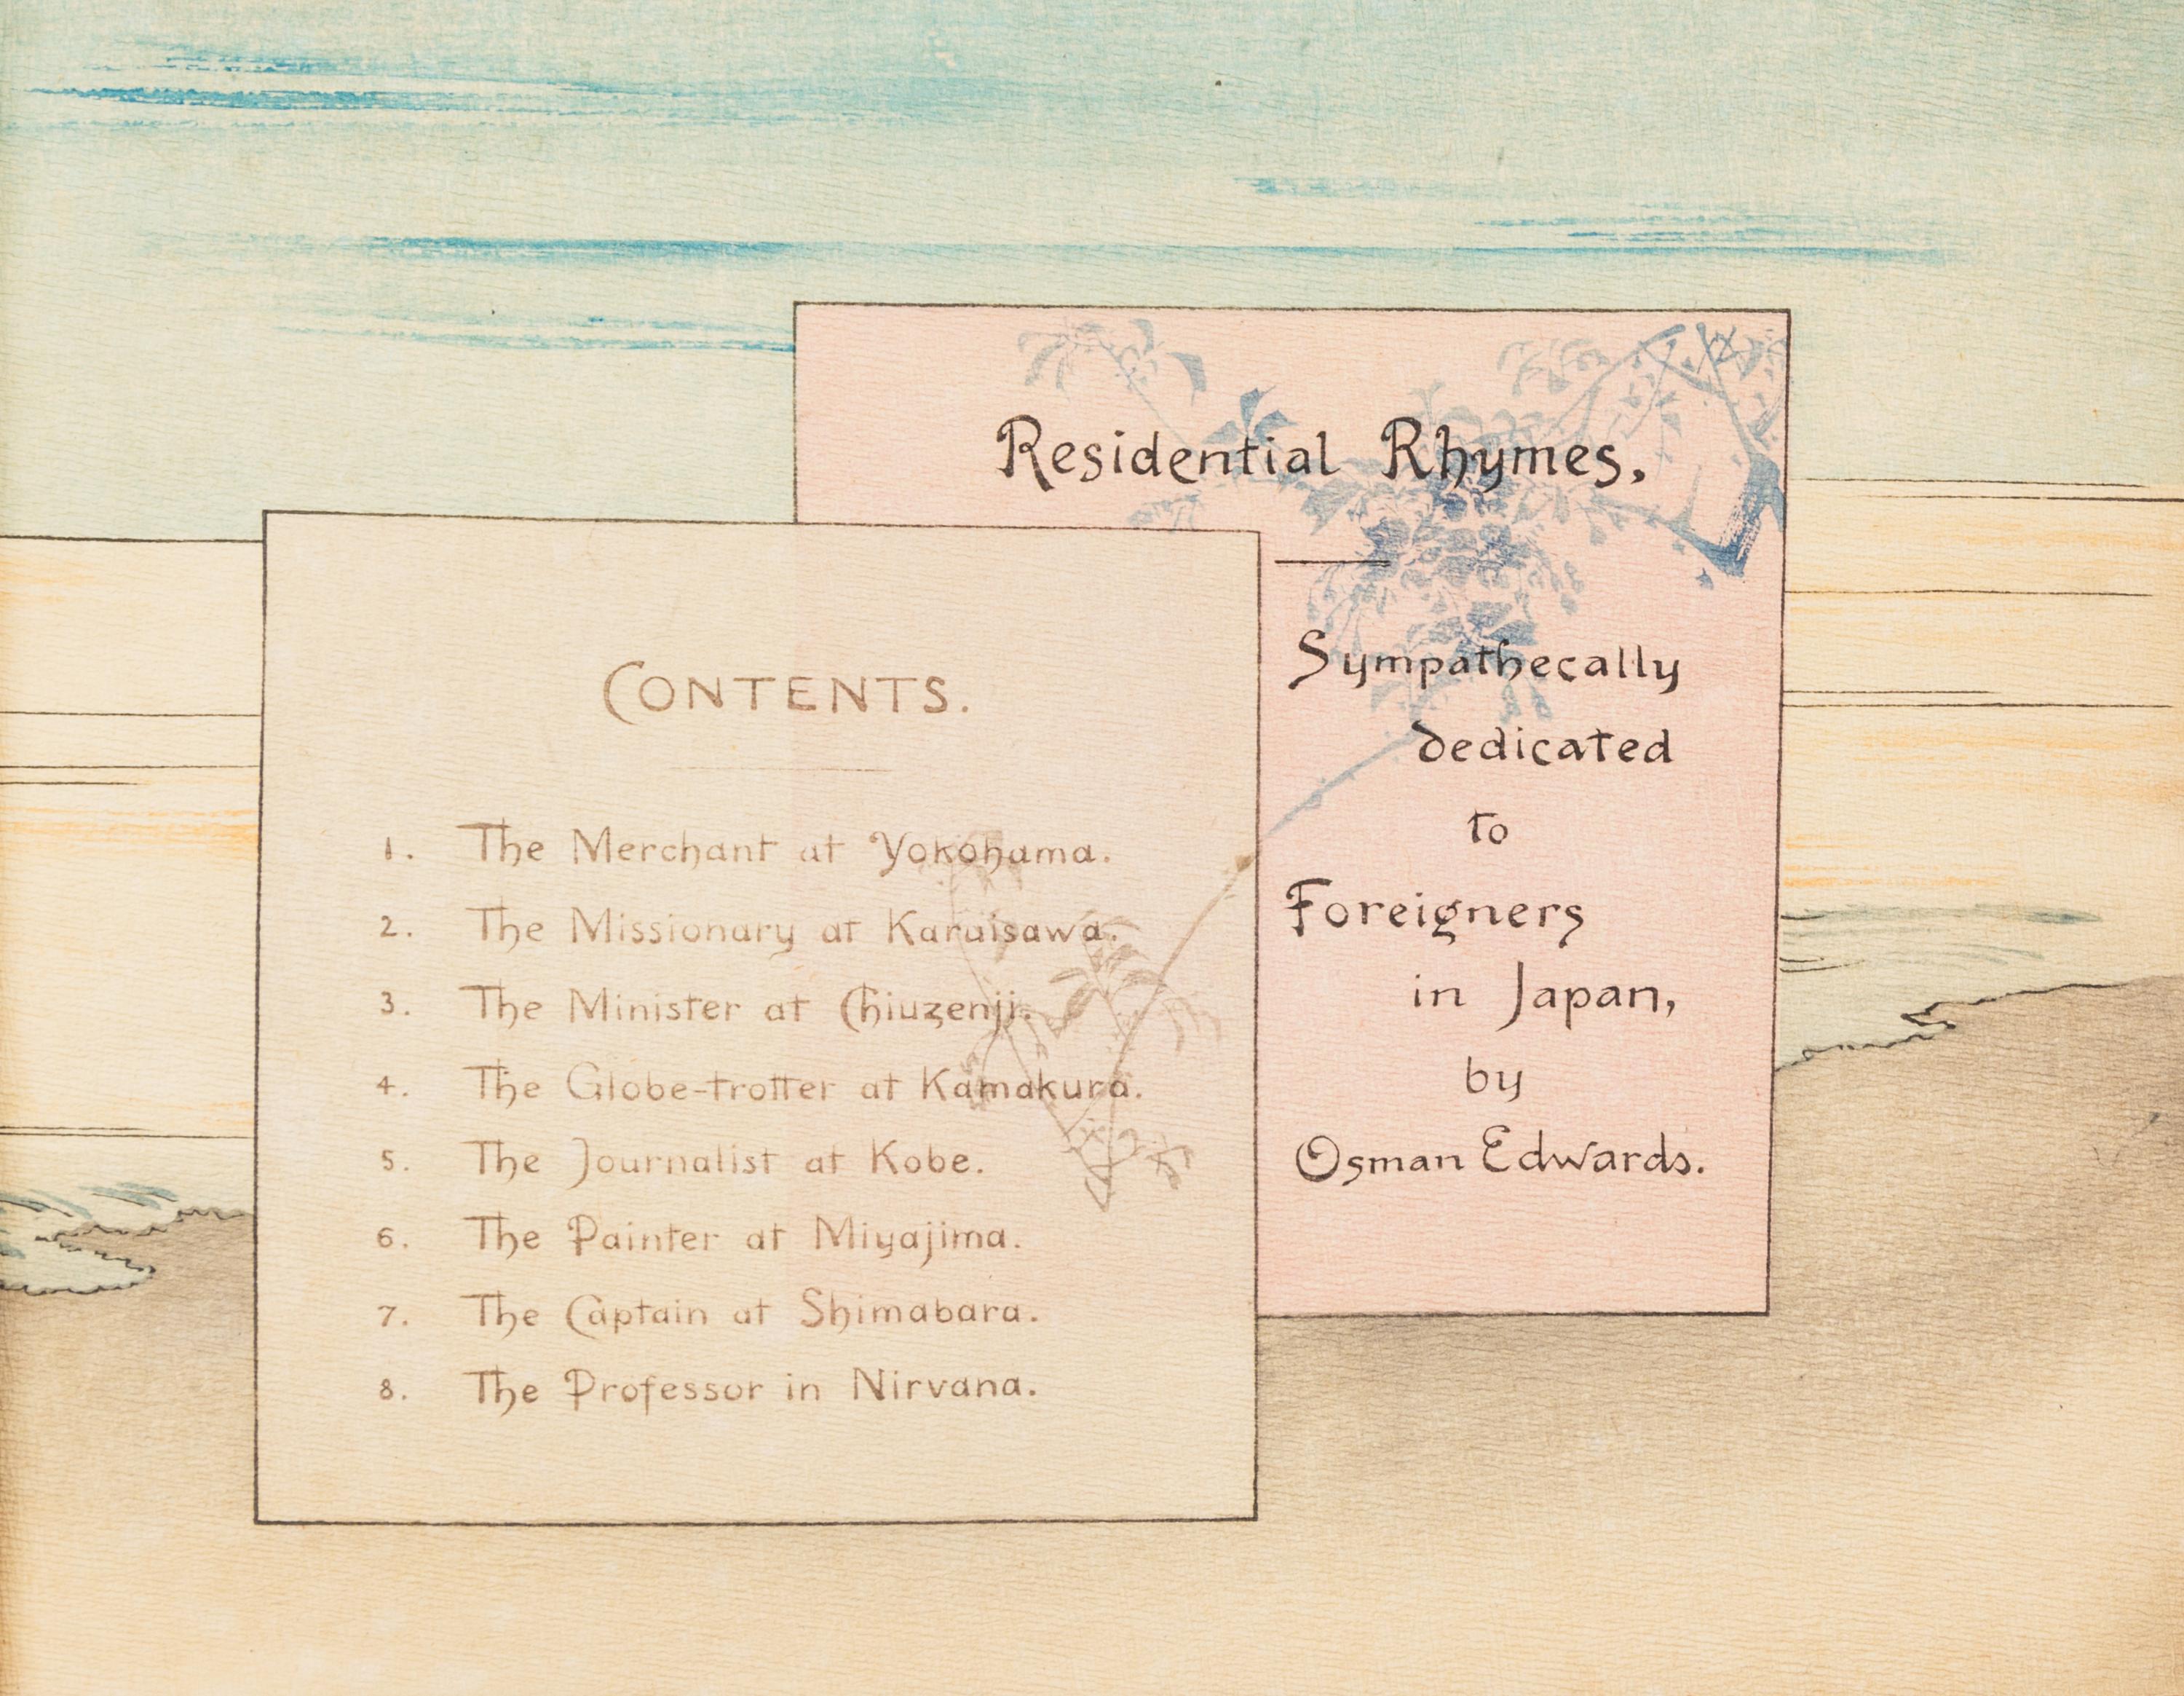 Residential Rhymes,
Sympathecally
dedicated
to
Foreigners
in Japan,
by
Osman Edwards.
CONTENTS.
1. The Merchant at Yokohama.
2. The Missionary at Karuisawa.
3. The Minister at Chiuzenji.
4. The Globe-trotter at Kamakura.
5. The Journalist at Kobe.
6. The Painter at Miyajima.
7. The Captain at Shimabara.
8. The Professor in Nirvana.